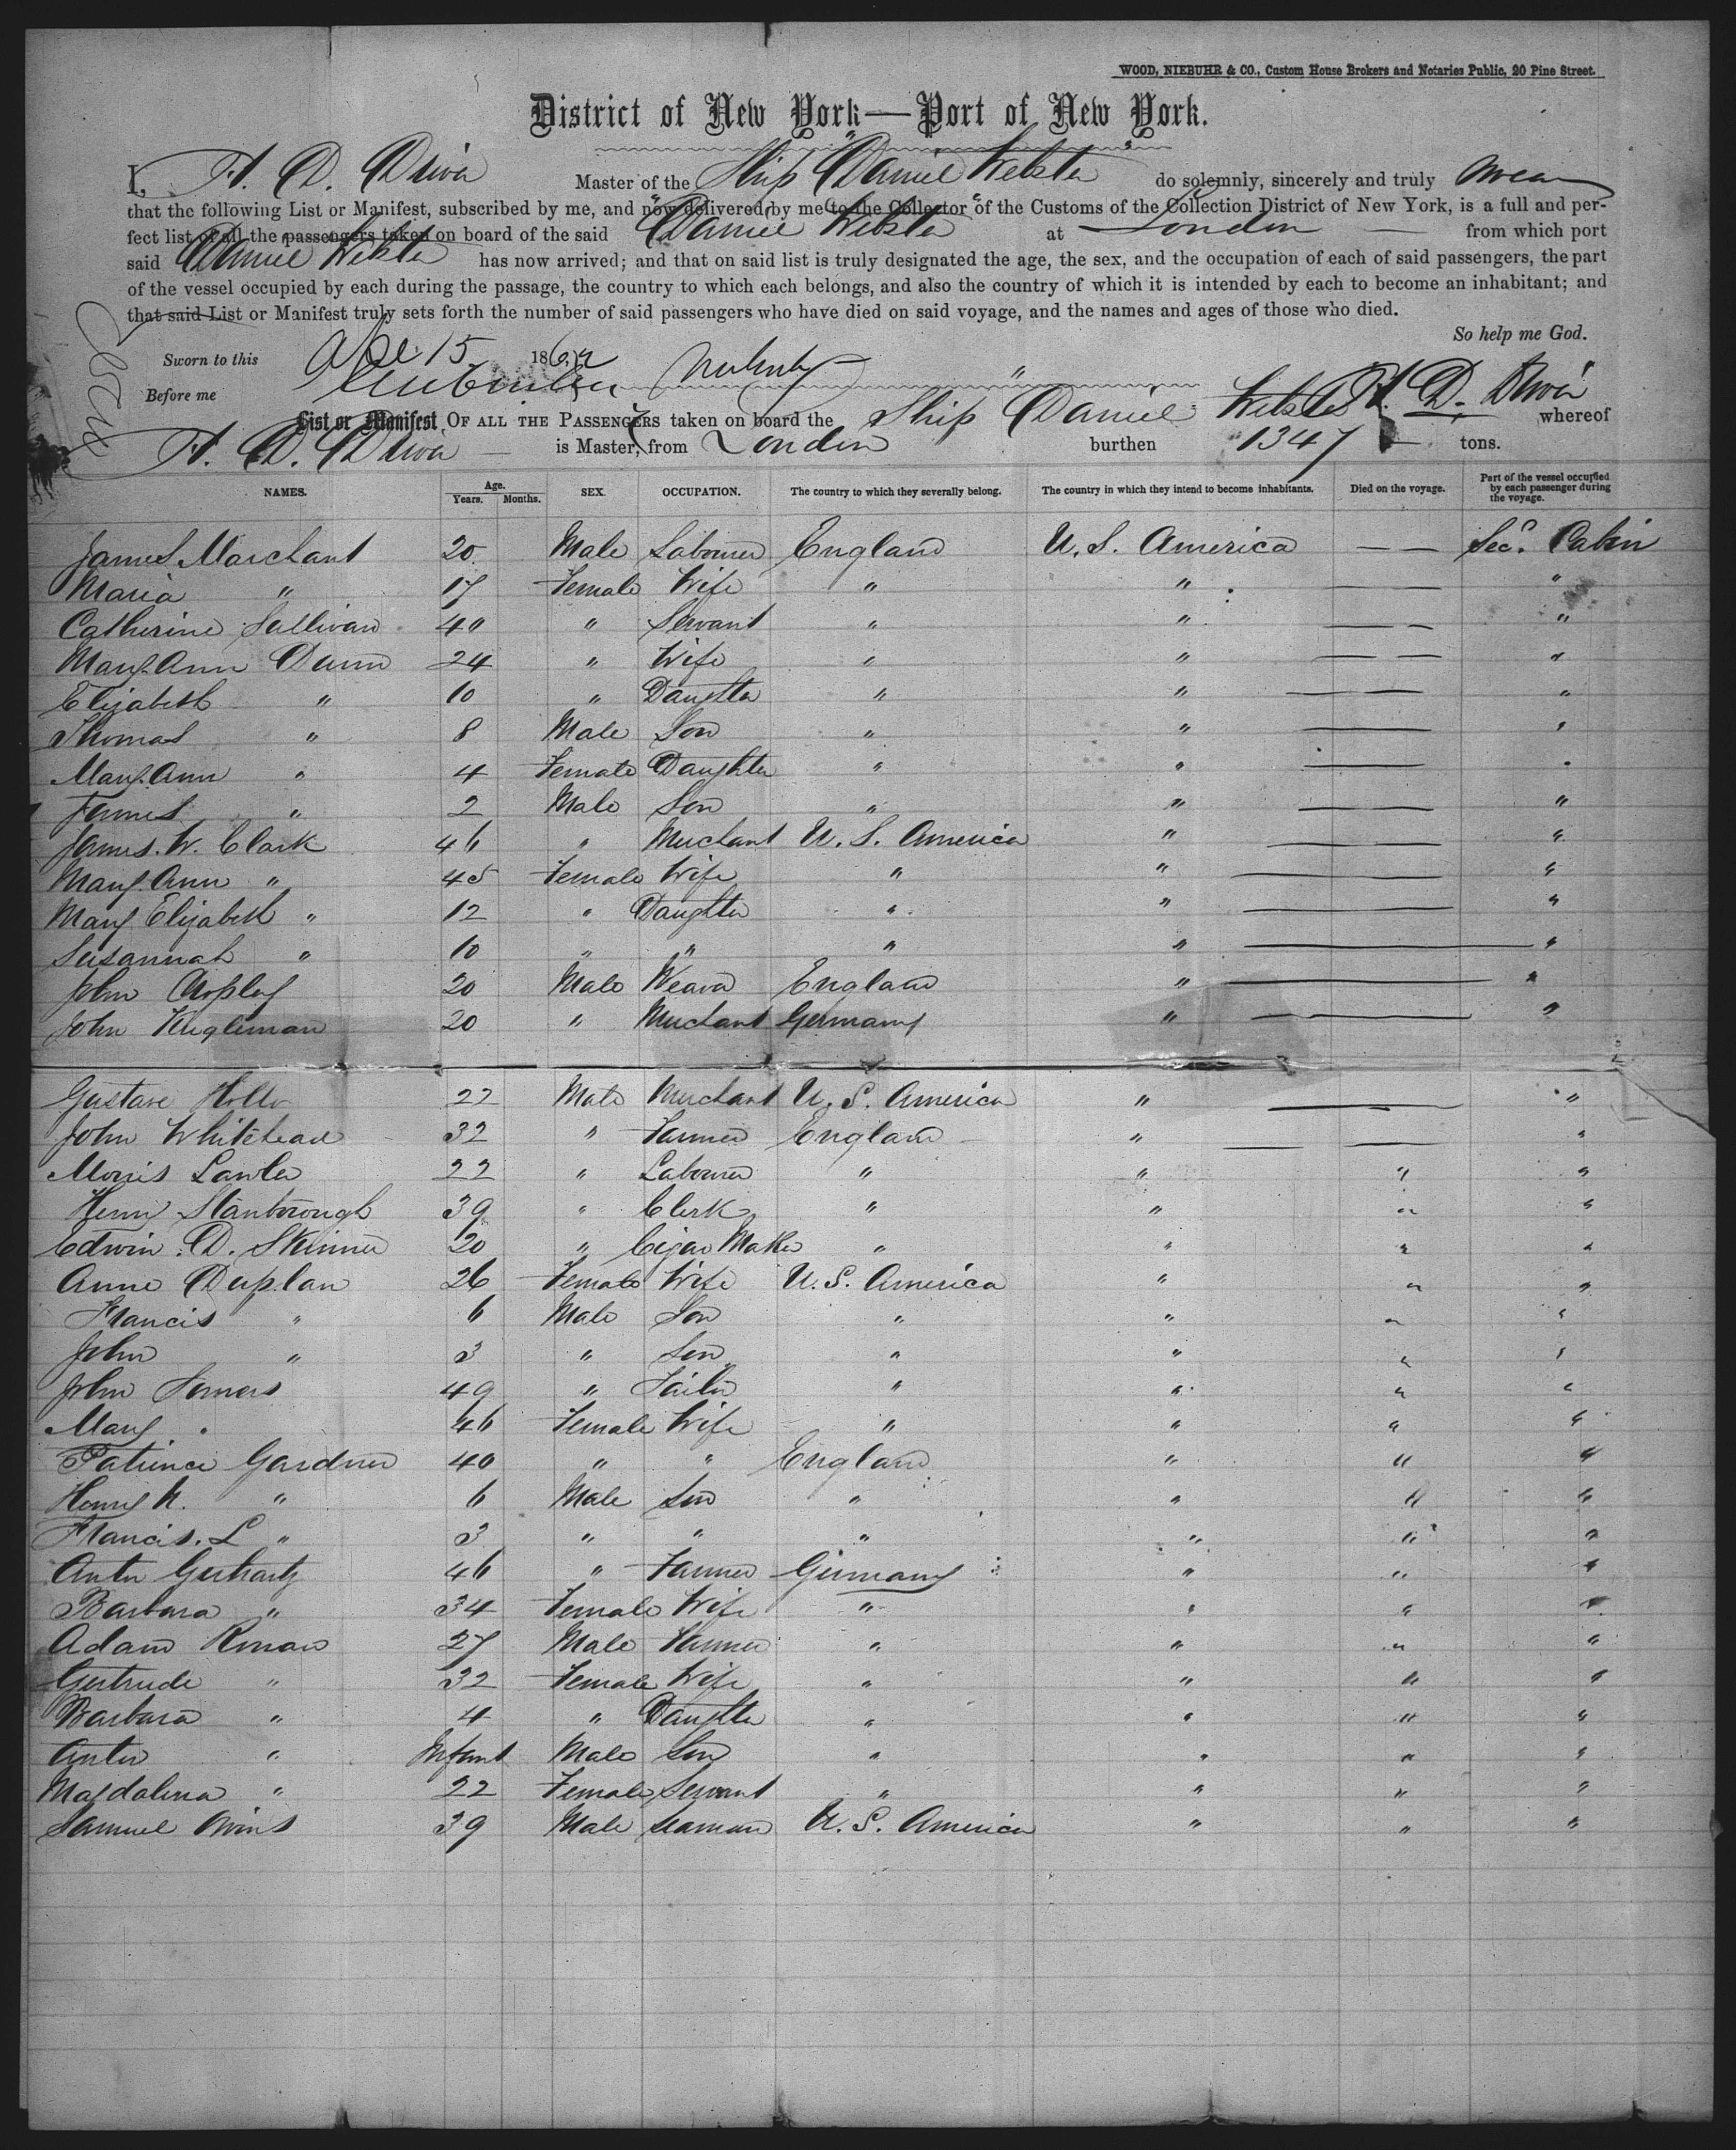 WOOD, NIEBUHR & CO., Custom House Brokers and Notaries Public, 20 Pine Street.
District of New York—Port of New York.
I, Master of the Ship Daniel Webster do solemnly, sincerely and truly swear
that the following List or Manifest, subscribed by me, and now delivered by me to the Collector of the Customs of the Collection District of New York, is a full and per-
fect list of all the passengers taken on board of the said Daniel Webster at London from which port
said Daniel Webster has now arrived; and that on said list is truly designated the age, the sex, and the occupation of each of said passengers, the part
of the vessel occupied by each during the passage, the country to which each belongs, and also the country of which it is intended by each to become an inhabitant; and
that said List or Manifest truly sets forth the number of said passengers who have died on said voyage, and the names and ages of those who died.
So help me God.
Sworn to this 15 186
Before me
List or Manifest OF ALL THE PASSENGERS taken on board the Ship Daniel Webster whereof
is Master, from London burthen 1347 tons.
NAMES. Age. Years. Months. SEX. OCCUPATION. The country to which they severally belong. The country in which they intend to become inhabitants. Died on the voyage. Part of the vessel occupied by each passenger during the voyage.
James Marchant 20 Male Labourer England U. S. America — — Sec. Cabin
Maria " 17 Female Wife " " — — "
Catherine Sullivan 40 " Servant " " — — "
Mary Ann Dunn 24 " Wife " " — — "
Elizabeth " 10 " Daughter " " — — "
Thomas " 8 Male Son " " — — "
Mary Ann " 4 Female Daughter " " — — "
James " 2 Male Son " " — — "
James. W. Clark 46 " Merchant U. S. America " — — "
Mary Ann " 45 Female Wife " " — — "
Mary Elizabeth " 12 " Daughter " " — — "
Susannah " 10 " " " " — "
John 20 Male Weaver England " — "
John Kugleman 20 " Merchant Germany " — — "
Gustave 22 Male Merchant U. S. America " — — "
John Whitehead 32 " Farmer England " — — "
Morris Lawler 22 " Labourer " " " "
Henry Stanborough 39 " Clerk " " " "
Edwin D. Skinner 20 " Cigar Maker " " " "
Anne Duplan 26 Female Wife U. S. America " " "
Francis " 6 Male Son " " " "
John " 3 " Son " " " "
John Somers 49 " Tailor " " " "
Mary " 46 Female Wife " " " "
Patience Gardner 40 " " England " " "
Henry " 6 Male Son " " " "
Francis. L " 3 " " " " " "
Anton 46 " Farmer Germany " " "
Barbara " 34 Female Wife " " " "
Adam 27 Male Farmer " " " "
Gertrude " 32 Female Wife " " " "
Barbara " 4 " Daughter " " " "
Anton " Infant Male Son " " " "
Magdalena " 22 Female Servant " " " "
Samuel 39 Male Seaman U. S. America " " "